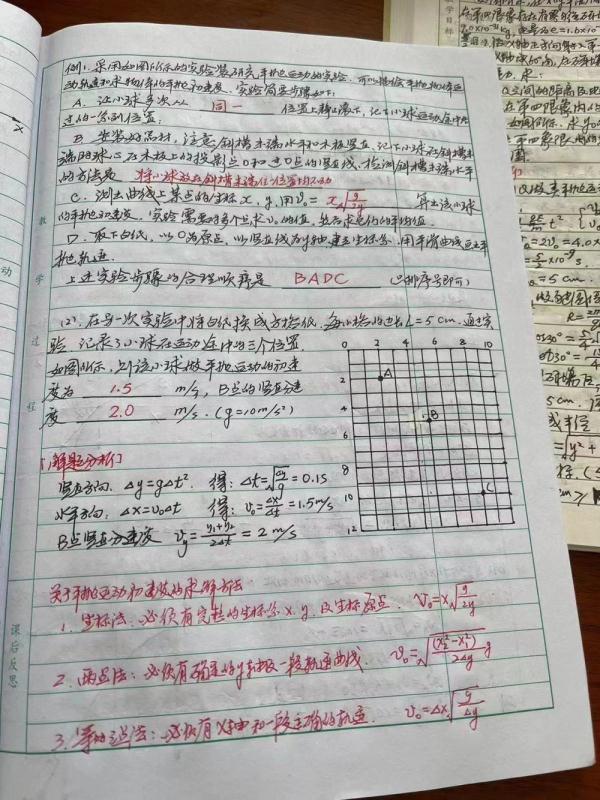 例1. 采用如图所示的实验装置研究平抛运动的实验, 可以描绘平抛物体运
动轨迹和求物体的平抛初速度, 实验简要步骤如下:
A. 让小球多次从 同一 位置上静止滚下, 记下小球运动途中经
过的一系列位置;
B. 安装好器材, 注意斜槽末端水平和木板竖直, 记下小球在斜槽末
端时球心在木板上的投影点O和过O点的竖直线, 检测斜槽末端水平
的方法是 将小球放在斜槽末端任一位置均不动
C. 测出曲线上某点的坐标x, y, 用v₀= x√(g/2y) 算出该小球
的平抛初速度, 实验需要对多个点求v₀的值, 然后求它们的平均值.
D. 取下白纸, 以O为原点, 以竖直线为y轴, 建立坐标系, 用平滑曲线画出平
抛轨迹.
上述实验步骤的合理顺序是 BADC (只排序号即可)
(2). 在另一次实验中将白纸换成方格纸, 每小格的边长L=5cm, 通过实
验, 记录了小球在运动途中的三个位置
如图所示, 则该小球做平抛运动的初速
度为 1.5 m/s, B点的竖直分速
度 2.0 m/s. (g=10m/s²)
0 2 4 6 8 10
2
4
6
8
10
12
A
B
C
[解题分析]
竖直方向. Δy=gΔt². 得: Δt=√(Δy/g)=0.1s
水平方向. Δx=v₀Δt 得: v₀=Δx/Δt=1.5m/s
B点竖直分速度 v_y=(y₁+y₂)/2Δt=2m/s
关于平抛运动初速度的求解方法
1. 坐标法. 必须有完整的坐标系x.y. 及坐标原点. v₀=x√(g/2y)
2. 两点法: 必须有确定的y轴和一段轨迹曲线. v₀=√((x₂²-x₁²)/2Δy g)
3. 等时法: 必须有x轴和一段正确的轨迹. v₀=Δx√(g/Δy)
教
学
过
程
课后反思
动
教学目标